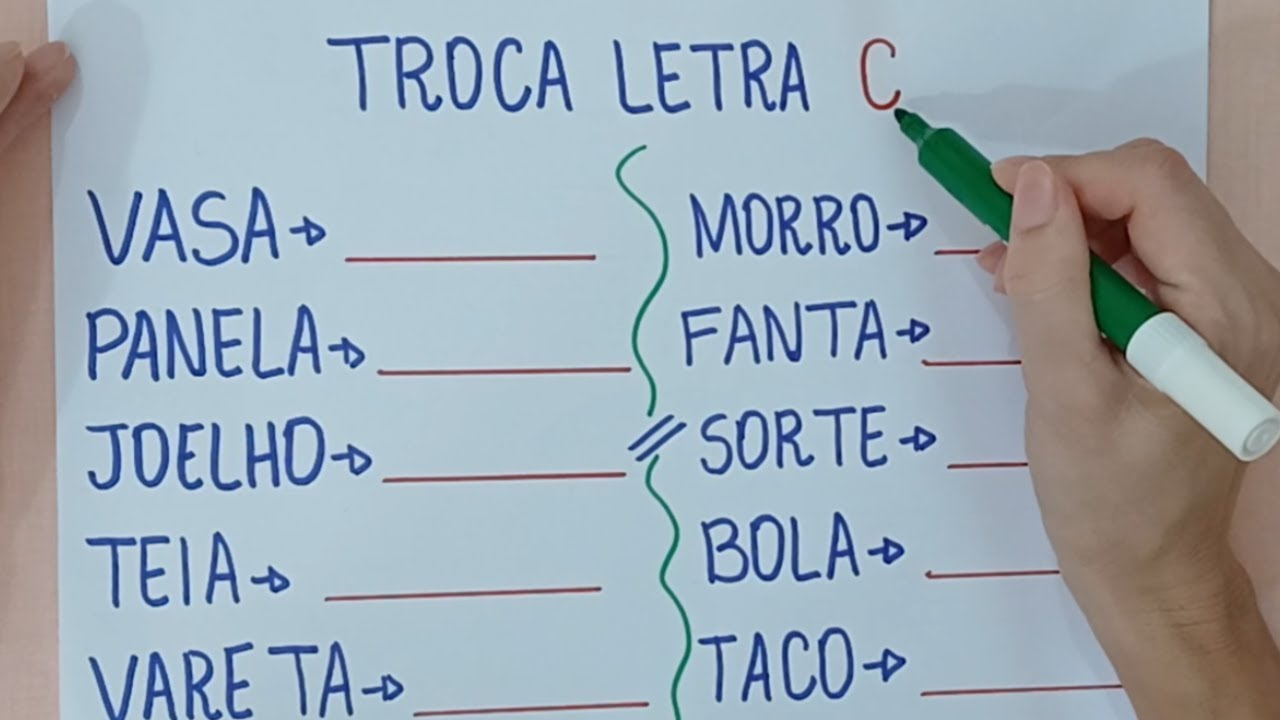 TROCA LETRA C
VASA→
PANELA→
JOELHO→
TEIA→
VARETA→
MORRO→
FANTA→
SORTE→
BOLA→
TACO→